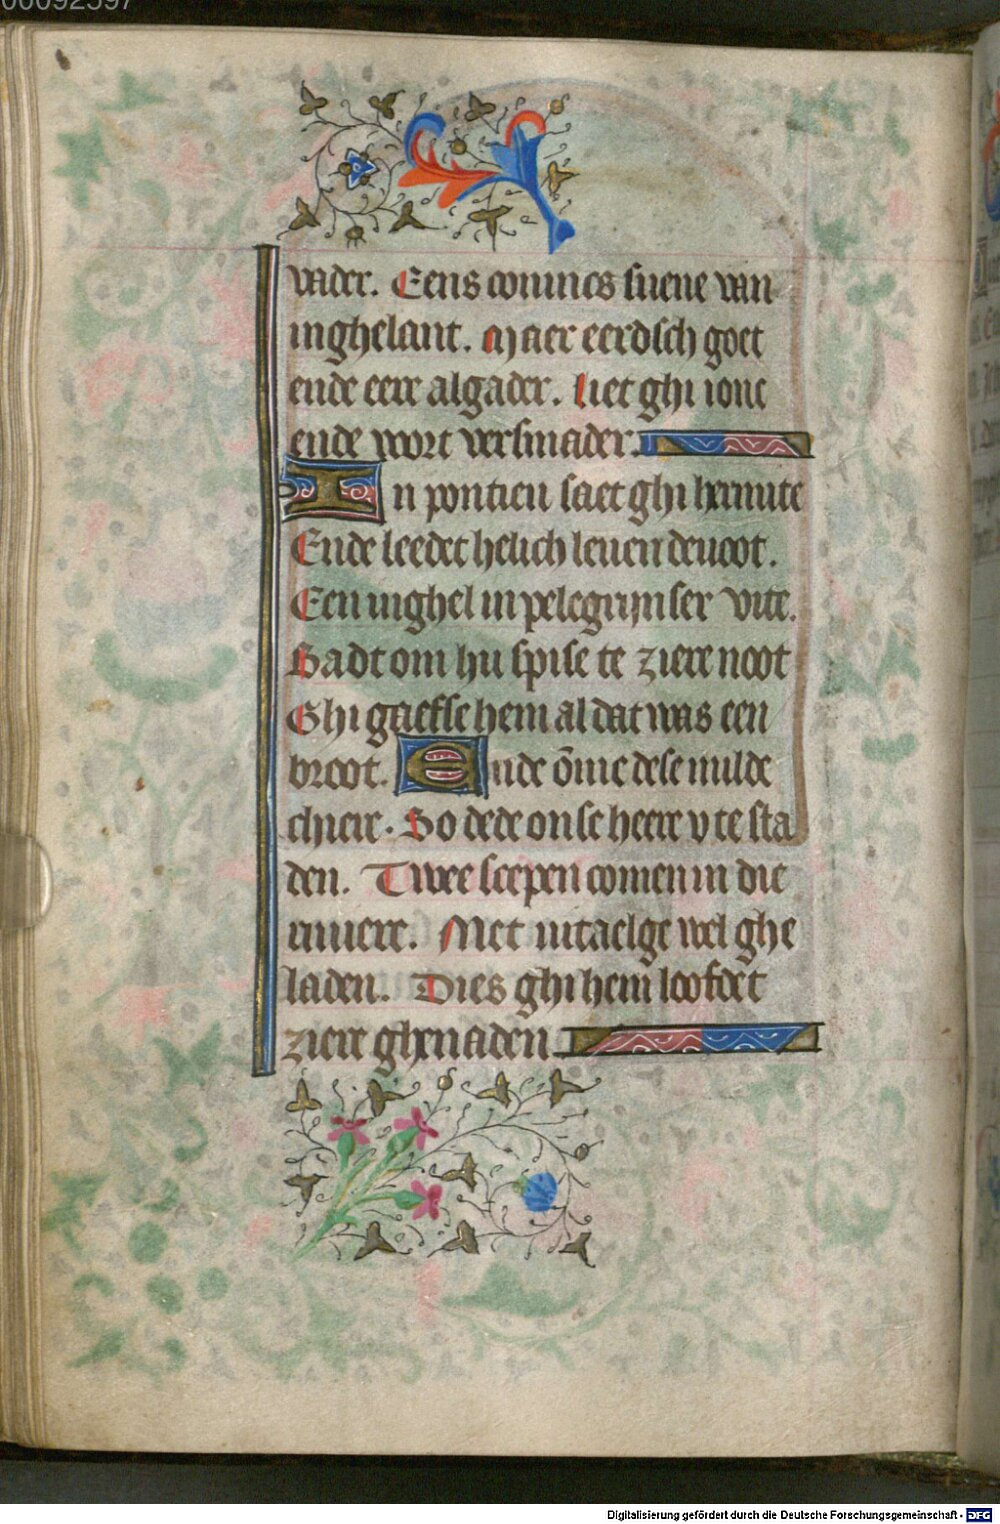 00092597
vader. Eens conincs suene van
inghelant. Maer eerdsch goet
ende eere algader. Liet ghi ionc
ende wort versmader.
In pontieu saet ghi hermite
Ende leedet helich leuen deuoot.
Een inghel in pelegrijnser vite.
Badt om hu spise te ziere noot
Ghi gaefse hem al dat was een
broot. Ende õme dese milde
chiere. So dede onse heere v te sta
den. Twee scepen comen in die
riuiere. Met vitaelge wel ghe
laden. Dies ghi hem loofdet
ziere ghenaden.
Digitalisierung gefördert durch die Deutsche Forschungsgemeinschaft - DFG